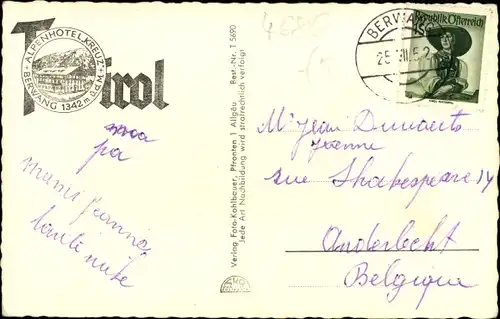 Tirol
ALPENHOTEL KREUZ
BERWANG 1342 m ü.d.M.
BERWANG
25.
Republik Österreich
pa
mami Jeannine
tante
Verlag Foto-Kohlbauer, Pfronten 1 Allgäu Best.-Nr. T 5690
Jede Art Nachbildung wird strafrechtlich verfolgt
Mr Jean
Jeanne
rue Shakespeare 14
Anderlecht
Belgique